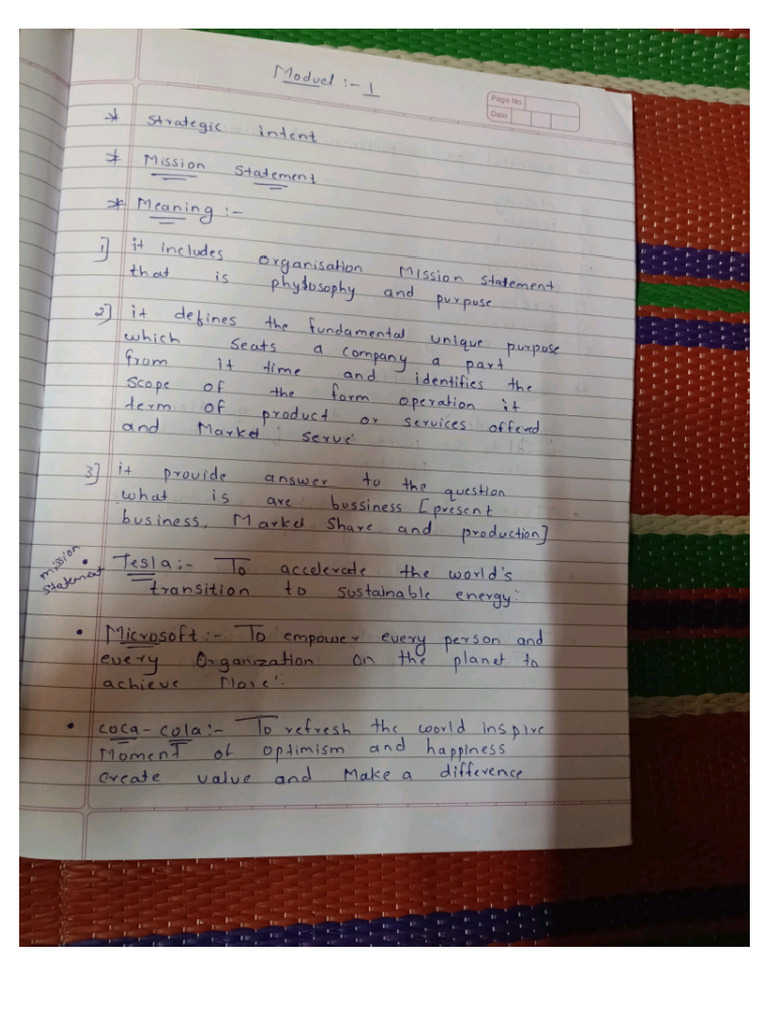 Moduel :- 1
Page No.
Date
* Strategic intent
* Mission Statement
* Meaning :-
1] it includes Organisation Mission Statement
that is phylosophy and purpose
2] it defines the fundamental unique purpose
which seats a company a part
from it time and identifies the
scope of the form operation it
term of product or services offered
and Market serve
3] it provide answer to the question
what is are bussiness [present
business, Market Share and production]
mission statement
• Tesla :- To accelerate the world's
transition to sustainable energy.
• Microsoft :- To empower every person and
every Organization on the planet to
achieve More.
• coca-cola :- To refresh the world inspire
Moment of optimism and happiness
create value and Make a difference